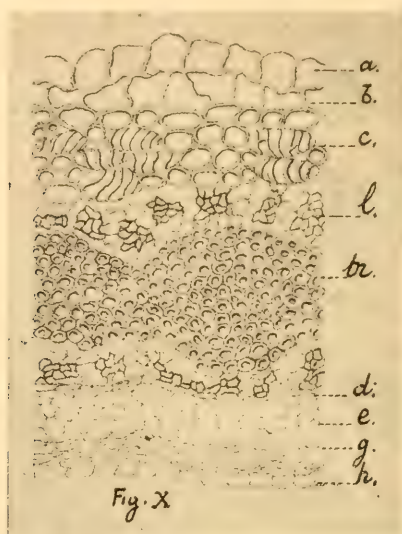 a.
b.
c.
l.
tr.
d.
e.
g.
h.
Fig. X